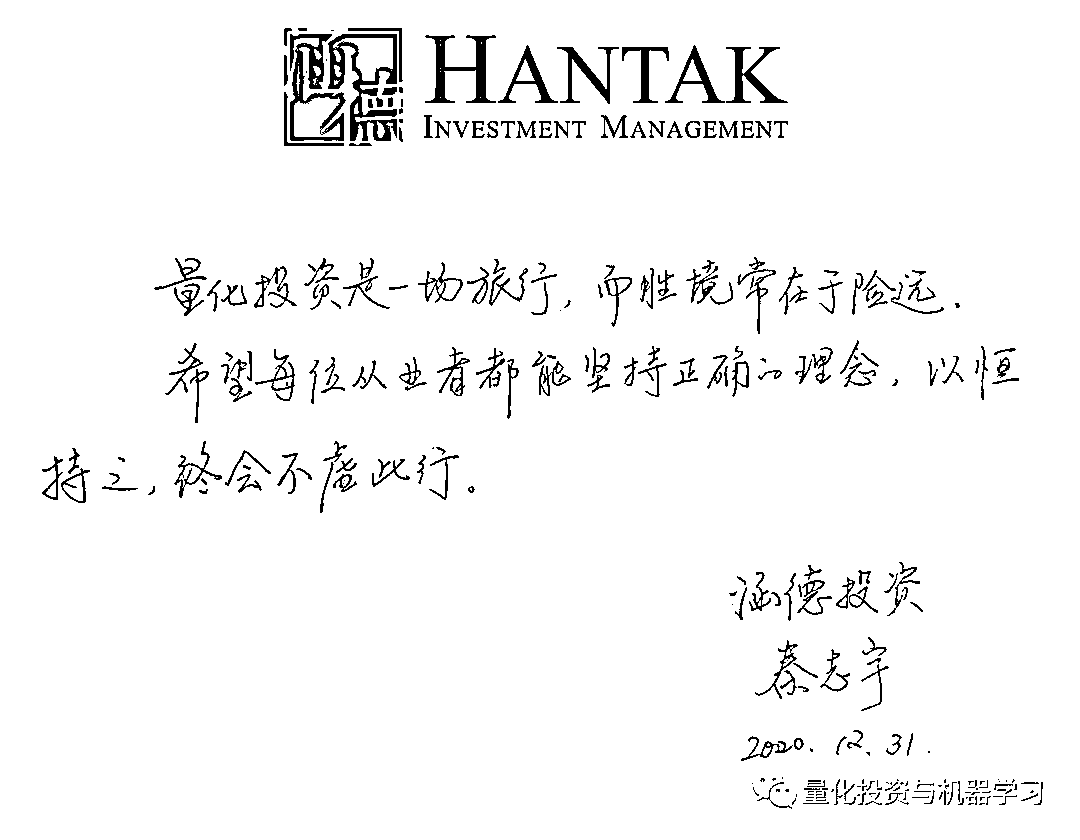 涵德
HANTAK
INVESTMENT MANAGEMENT
量化投资是一场旅行，而胜境常在于险远.
希望每位从业者都能坚持正确的理念，以恒
持之，终会不虚此行。
涵德投资
秦志宇
2020.12.31.
量化投资与机器学习